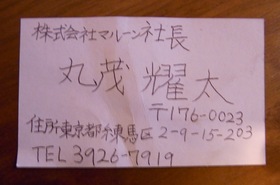 株式会社マルーン社長
丸茂耀太
〒176-0023
住所東京都練馬区2-9-15-203
TEL 3926-7919